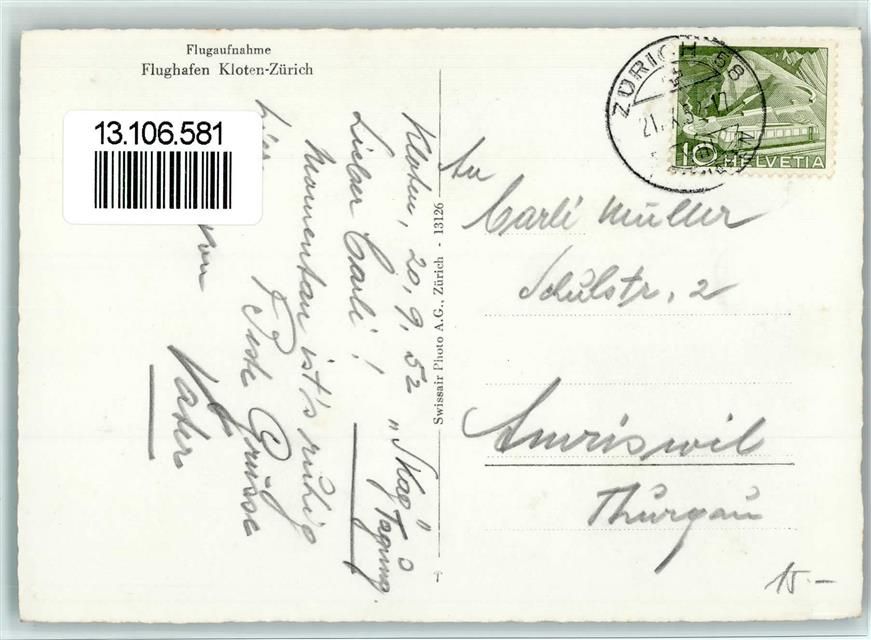 Flugaufnahme
Flughafen Kloten-Zürich
13.106.581
Kloten, 20.9.52 „Skag"
Tagung
Lieber Carli!
Momentan ist's ruhig
hier
Beste Grüsse
von
Vater
Swissair Photo A.G., Zürich - 13126
ZÜRICH 58
10 HELVETIA
An
Carli Müller
Schulstr. 2
Amriswil
Thurgau
15.-